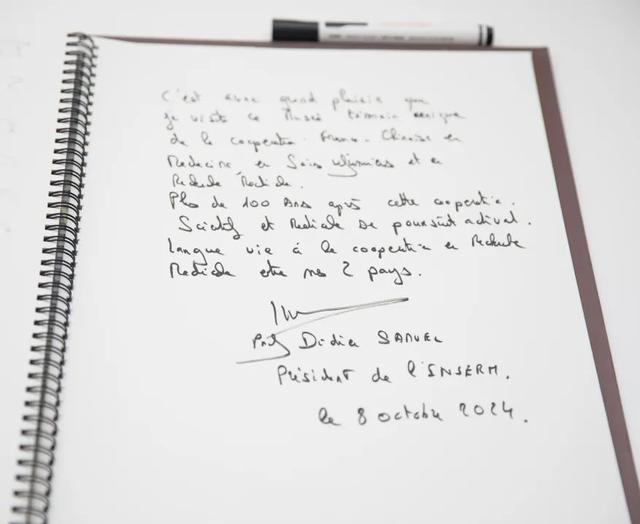 C'est avec grand plaisir que
je visite ce Musée témoin unique
de la coopération Franco-Chinoise en
Medecine, en Soins infirmiers et en
Recherche Médicale.
Plus de 100 Ans après cette coopération
Scientif et Médicale se poursuit activet.
Longue vie à la coopération en Recherche
Médicale entre nos 2 pays.
Prof Didier SAMUEL
Président de l'INSERM.
le 8 octobre 2024.